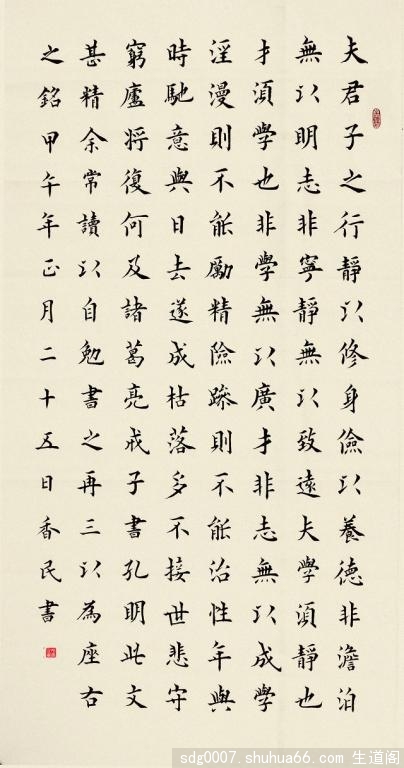 夫君子之行靜以修身儉以養德非澹泊
無以明志非寧靜無以致遠夫學須靜也
才須學也非學無以廣才非志無以成學
淫漫則不能勵精險躁則不能治性年與
時馳意與日去遂成枯落多不接世悲守
窮廬將復何及諸葛亮戒子書孔明此文
甚精余常讀以自勉書之再三以為座右
之銘甲午年正月二十五日香民書
sdg0007.shuhua66.com 生道阁